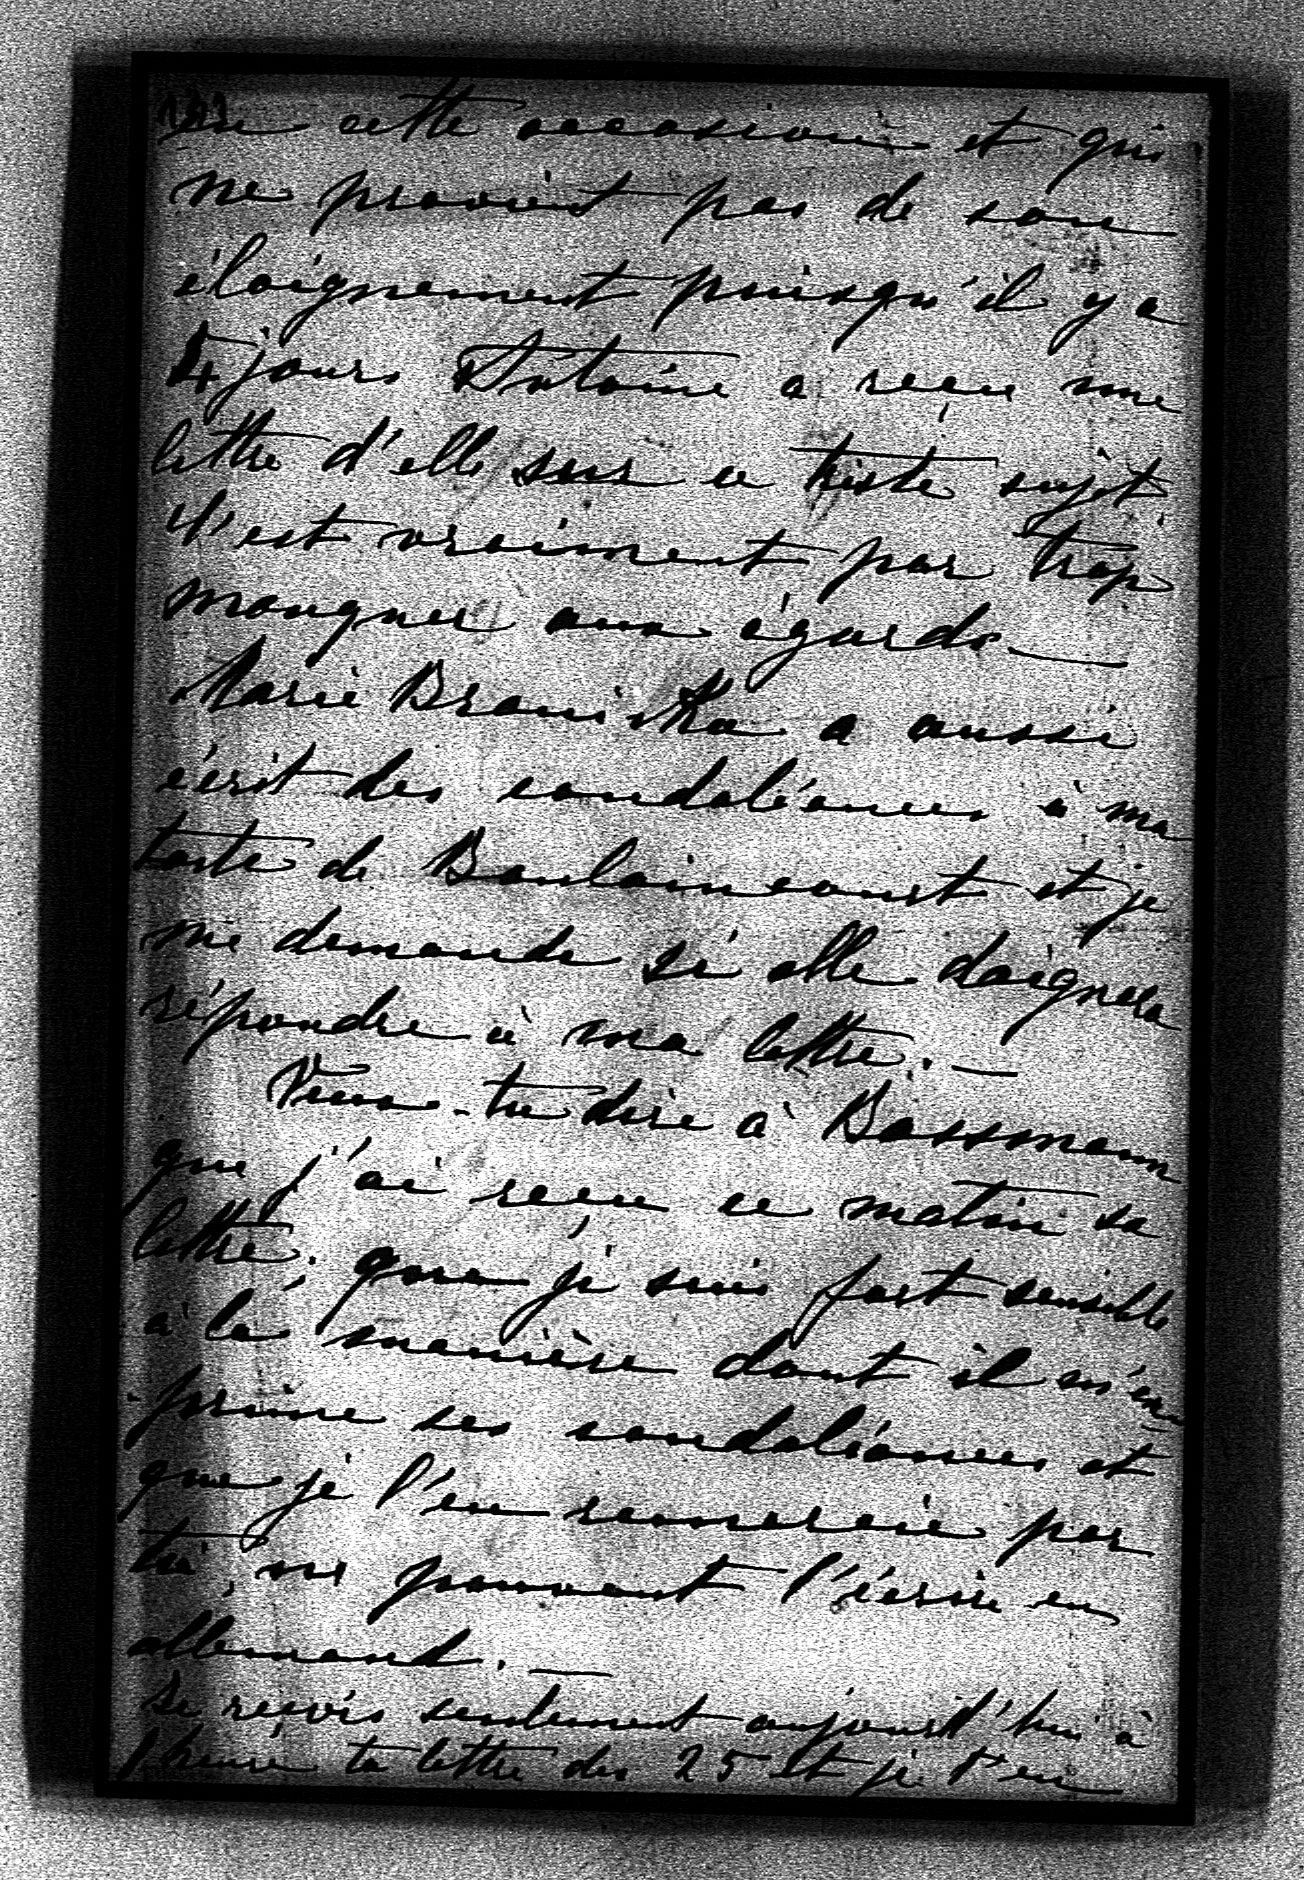 en cette occasion et qui
ne provient pas de son
éloignement puisqu'il y a
4 jours Antoine a reçu une
lettre d'elle sur ce triste sujet
C'est vraiment par trop
manquer aux égards. —
Marie Braniska a aussi
écrit des condoléances à ma
tante de Boulaincourt et je
me demande si elle daignera
répondre à ma lettre. —
Veux-tu dire à Bassmann
que j'ai reçu ce matin sa
lettre, que je suis fort sensible
à la manière dont il m'ex
-prime ses condoléances et
que je l'en remercie par
toi, ne pouvant l'écrire en
allemand. —
Je reçois seulement aujourd'hui à
1 heure ta lettre du 25 et je t'en